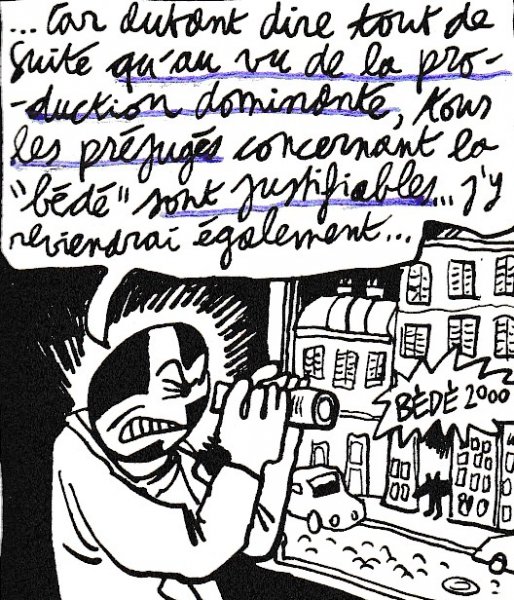 ... Car autant dire tout de
suite qu'au vu de la pro-
-duction dominante, tous
les préjugés concernant la
"bédé" sont justifiables... j'y
reviendrai également...
BÉDÉ 2000